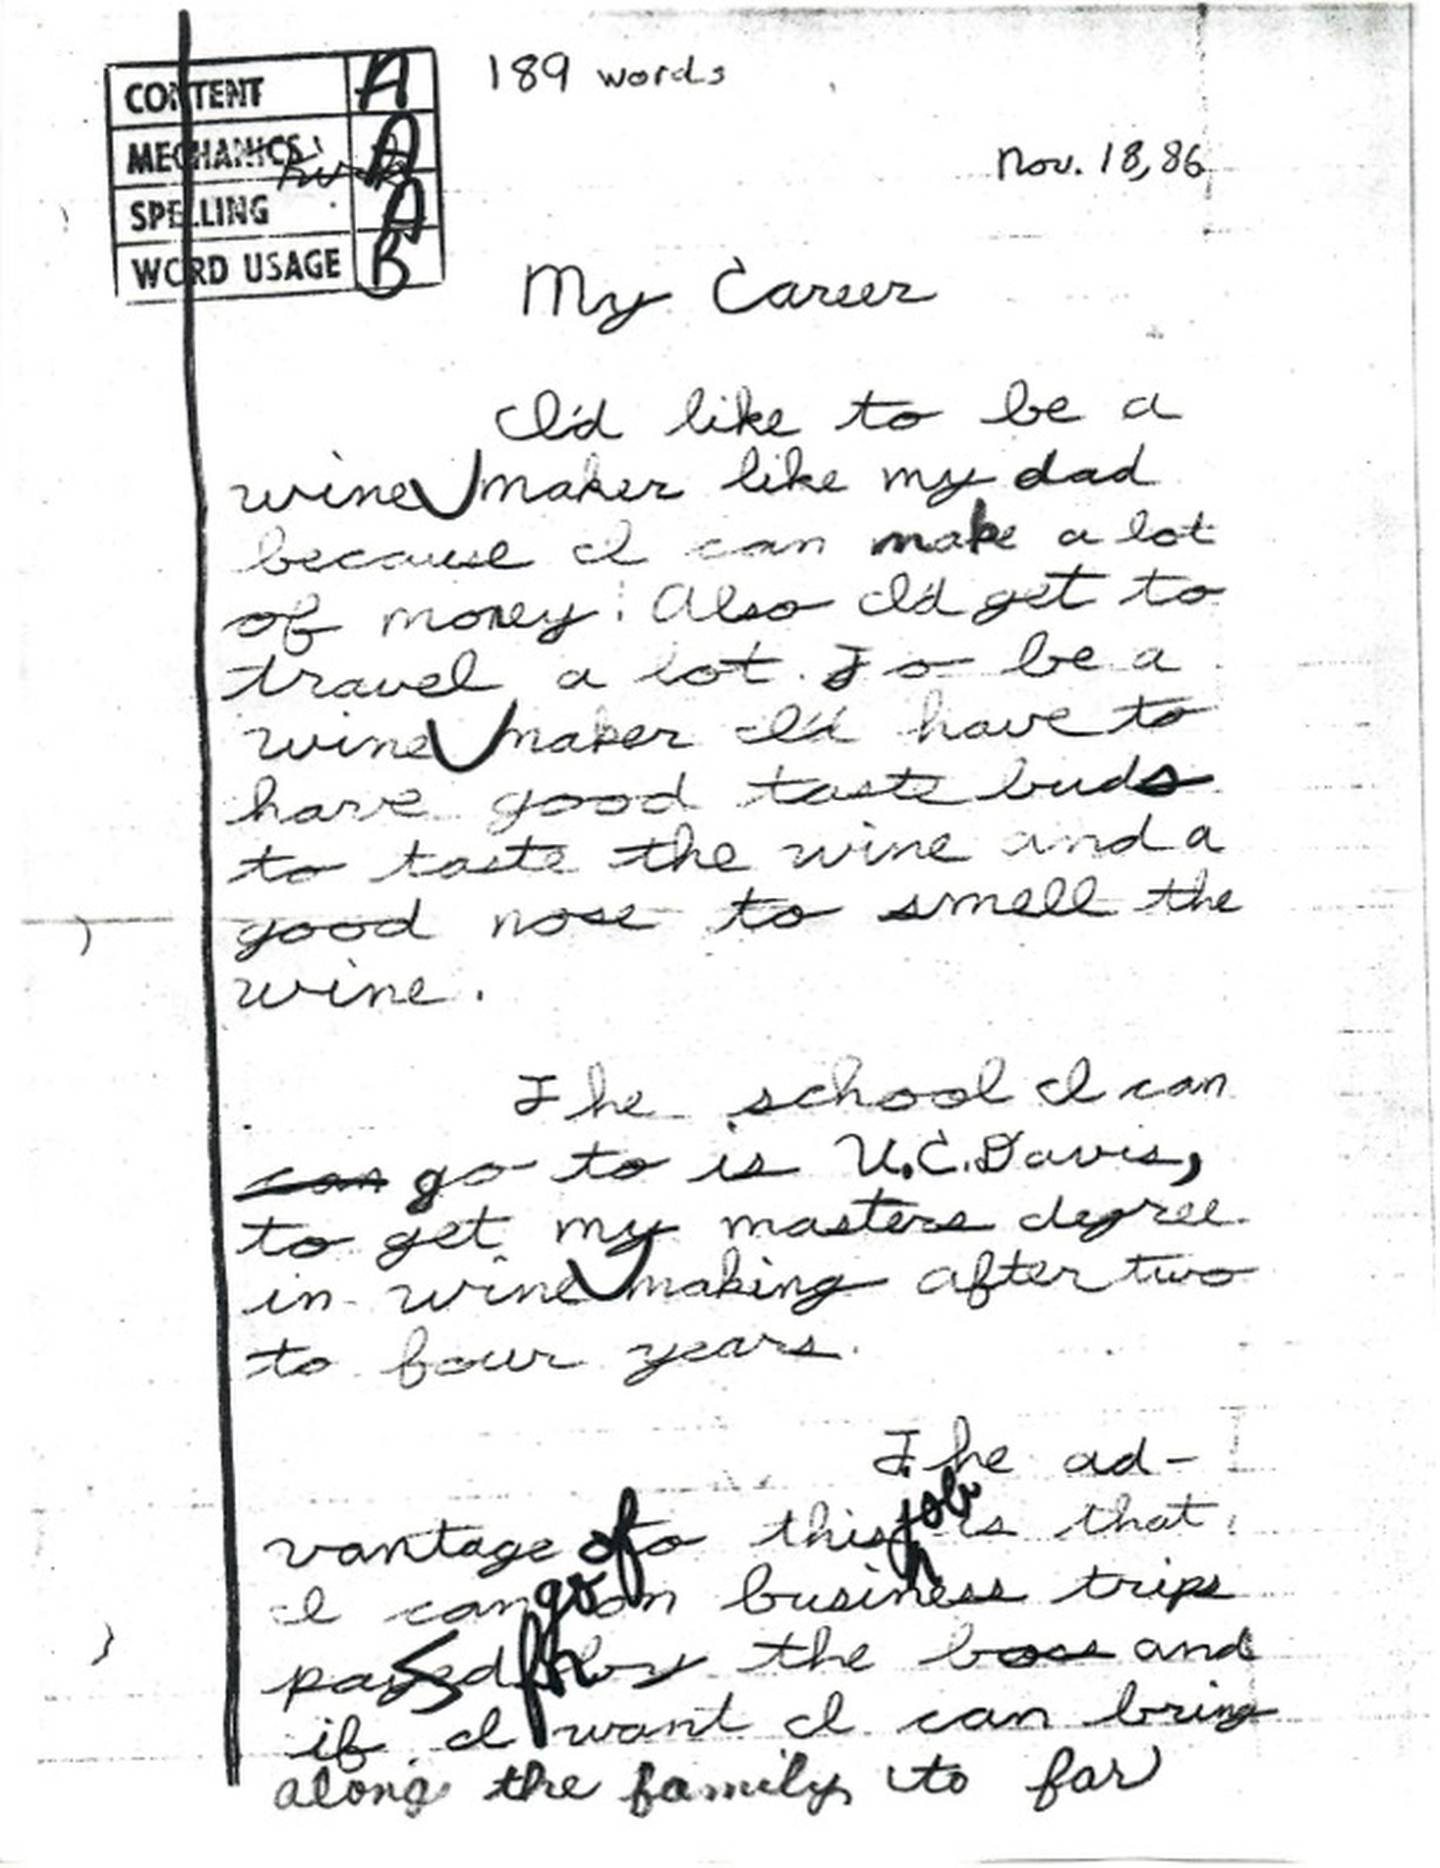 189 words
CONTENT A
MECHANICS A
SPELLING A
WORD USAGE B
Nov. 18, 86
My Career
I'd like to be a
wine maker like my dad
because I can make a lot
of money. Also I'd get to
travel a lot. To be a
wine maker I'd have to
have good taste buds
to taste the wine and a
good nose to smell the
wine.
The school I can
can go to is U.C. Davis,
to get my masters degree
in wine making after two
to four years.
The ad-
job
vantage of to this is that
go
I can on business trips
for by the boss and
if I want I can bring
along the family, to far